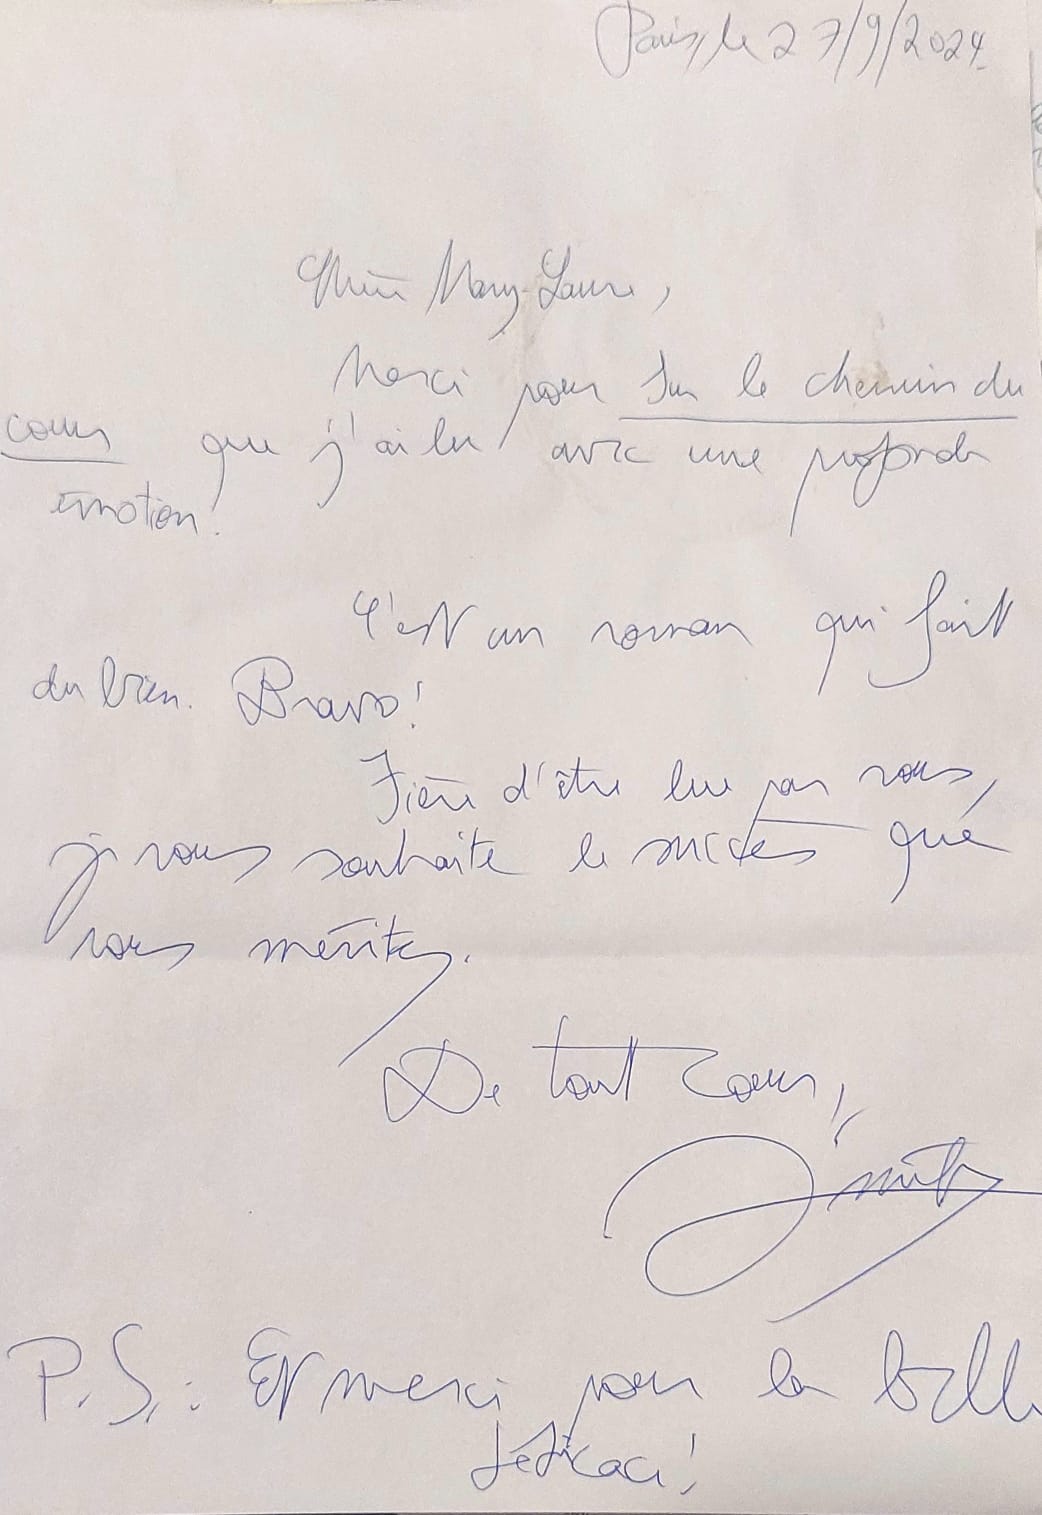 Paris, le 27/9/2024.
Chère Mary-Laure,
Merci pour Sur le chemin du
cœur que j'ai lu avec une profonde
émotion!
C'est un roman qui fait
du bien. Bravo!
Fière d'être lue par vous,
je vous souhaite le succès que
vous méritez.
De tout cœur,
P.S.: Et merci pour la belle
dédicace!